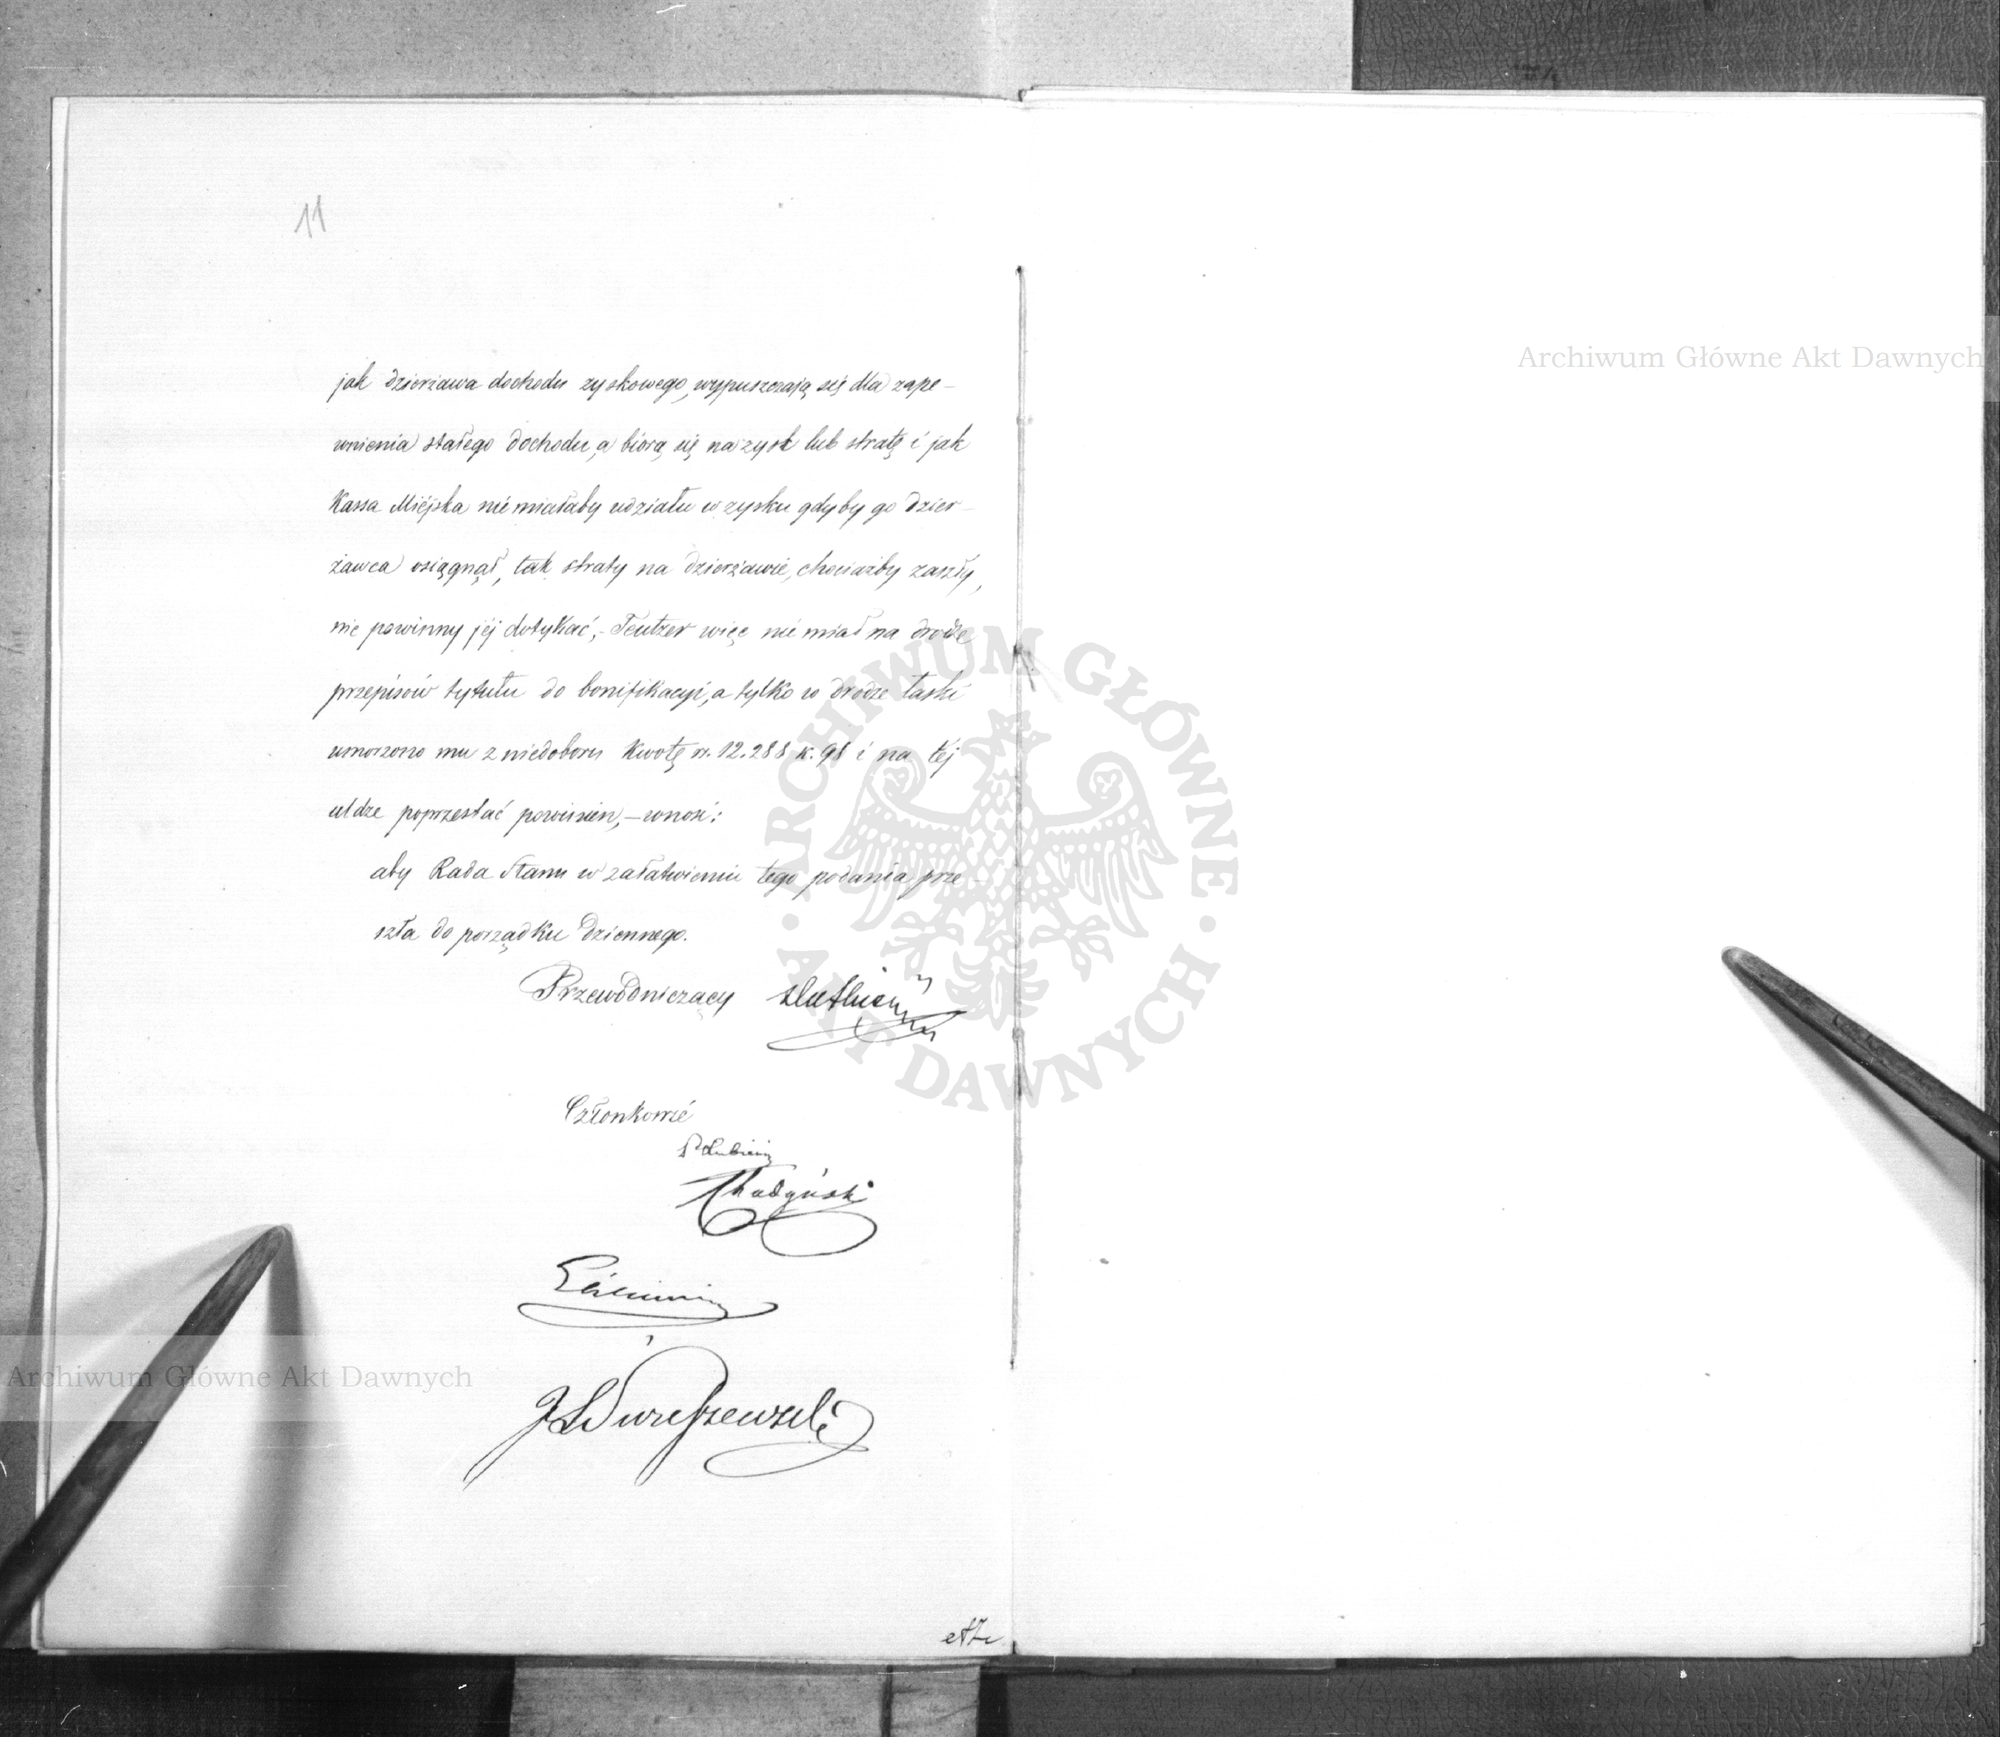 11
jak dzierżawa dochodu zyskowego, wypuszczają się dla zape-
wnienia stałego dochodu, a biorą się na zysk lub stratę i jak
Kassa Miéjska nie miałaby udziału w zysku gdyby go dzier-
żawca osiągnął, tak straty na dzierżawie, chociażby zaszły,
nie powinny jéj dotykać,- Teutzer więc nie miał na drodze
przepisów tytułu do bonifikacyi, a tylko w drodze łaski
umorzono mu z niedoboru kwotę rs. 12.288 k. 98 i na téj
uldze poprzestać powinien,- wnosi:
aby Rada Stanu w załatwieniu tego podania prze-
szła do porządku dziennego.
Przewodniczący
Członkowie
Archiwum Główne Akt Dawnych
Archiwum Główne Akt Dawnych
ARCHIWUM GŁÓWNE · AKT DAWNYCH ·